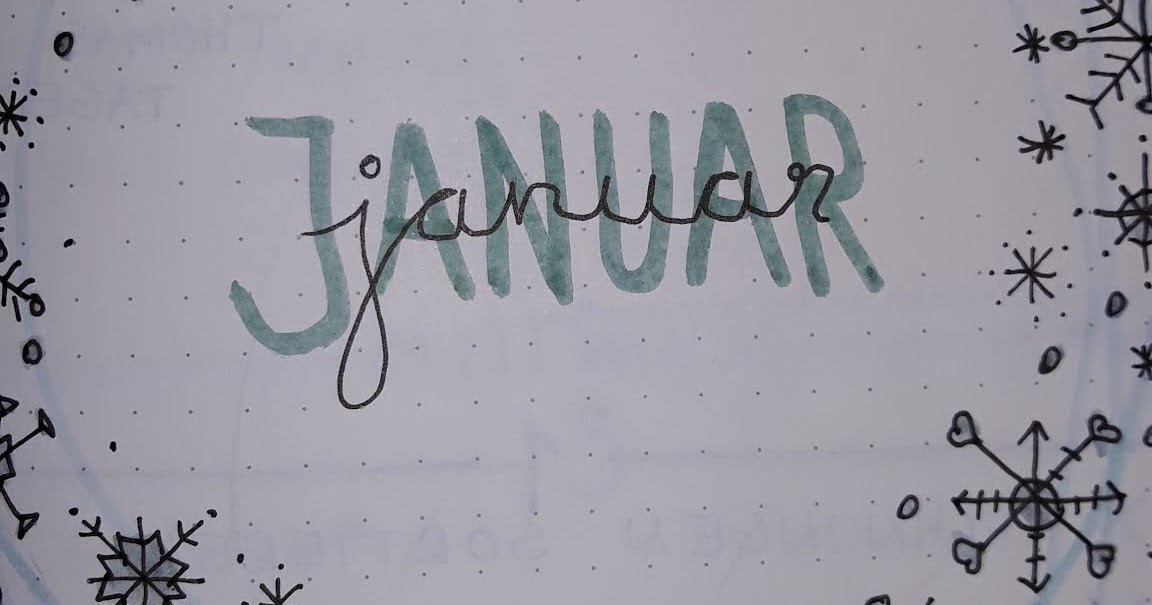 JANUAR
januar